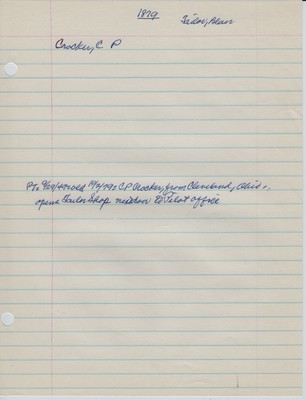 1879
Tailor, Blair
Crocker, C P
PTo 9/29/4 10/2/79: C P Crocker, from Cleveland, Ohio,
opens Tailor Shop next door to Pilot office